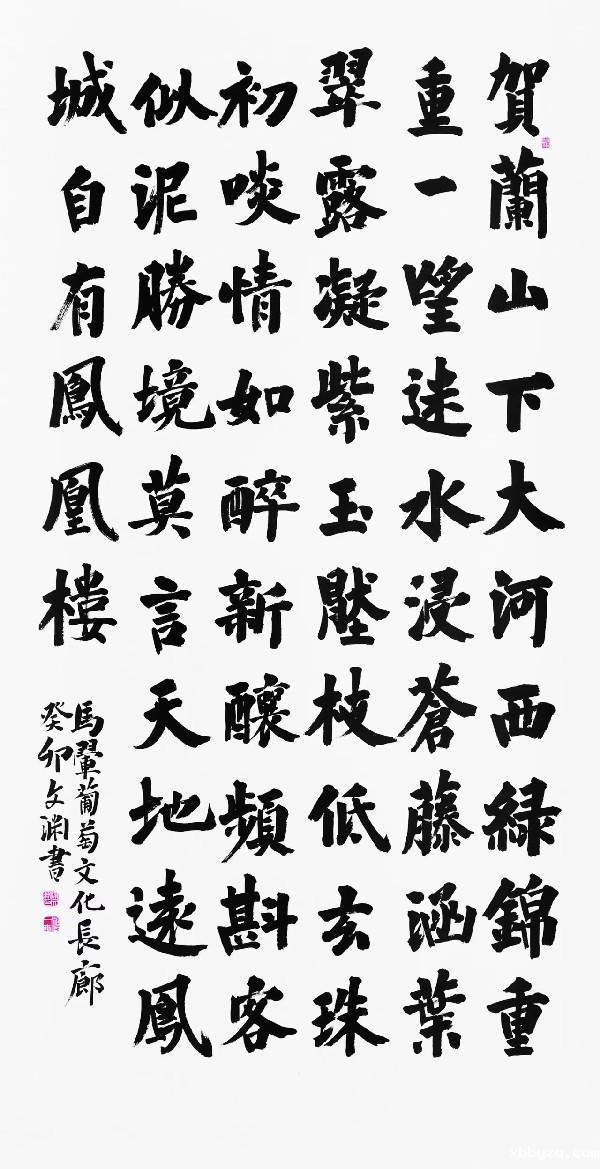 賀蘭山下大河西綠錦重
重一望迷水浸蒼藤涵葉
翠露凝紫玉壓枝低玄珠
初啖情如醉新釀頻斟客
似泥勝境莫言天地遠鳳
城自有鳳凰樓
馬翬葡萄文化長廊
癸卯文淵書
xbbyzq.com